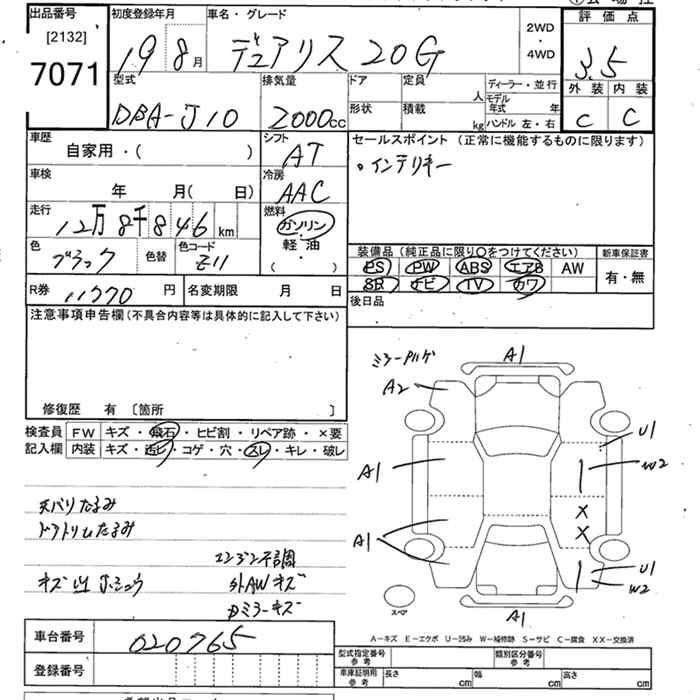 出品番号 初度登録年月 車名・グレード 評価点
[2132] 2WD
7071 19 8月 デュアリス 20G ・
4WD 3.5
型式 排気量 ドア 定員 ディーラー・並行 外装 内装
人 モデル年式 年
DBA-J10 2000cc 形状 積載 kg ハンドル 左・右 C C
車歴 シフト セールスポイント (正常に機能するものに限ります)
自家用・( ) AT 。インテリキー
車検 冷房
年 月( 日) AAC
走行 燃料
12万8千846km ガソリン
色 色替 色コード 軽油 装備品 (純正品に限り○をつけてください) 新車保証書
ブラック Z11 ( ) PS PW ABS エアB AW 有・無
R券 11770円 名変期限 月 日 SR ナビ TV カワ
後日品
注意事項申告欄(不具合内容等は具体的に記入して下さい)
修復歴 有 〔箇所 〕
検査員 FW キズ・飛石・ヒビ割・リペア跡・×要
記入欄 内装 キズ・ヨゴレ・コゲ・穴・スレ・キレ・破レ
天バリたるみ
ドアトリムたるみ
エンジン不調
外AWキズ
Dミラーキズ
A1
A2
U1
W2
A1
X
X
A1
U1
W2
A1
スペア
A-キズ E-エクボ U-凹み W-補修跡 S-サビ C-腐食 XX-交換済
車台番号 020765
登録番号
型式指定番号 参考 類別区分番号 参考
車庫証明用 参考 長さ cm 幅 cm 高さ cm